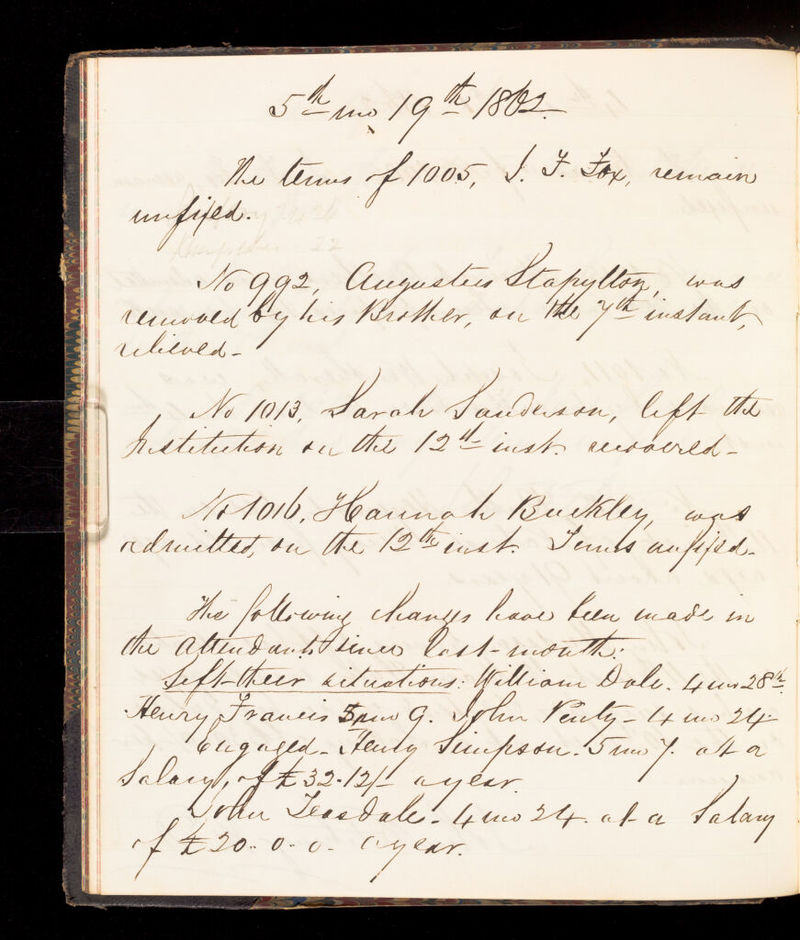 5th mo 19th 1862.
The terms of 1005, J. F. Fox, remain
unfixed.
No 992, Augustus Stapylton, was
removed by his Brother, on the 7th instant,
relieved-
No 1013, Sarah Sanderson, left the
Institution on the 12th inst. recovered-
No 1016, Hannah Buckley, was
admitted, on the 12th inst. Terms unfixed-
The following changes have been made in
the Attendants since last-month:
Left their situations: William Dale. 4 mo 28th
Henry Francis 5 mo 9. John Penty- 4 mo 24
Engaged- Henry Simpson. 5 mo 7. at a
Salary, of £32.12/- a year.
John Teasdale- 4 mo 24. at a Salary
of £20-0-0- a year.